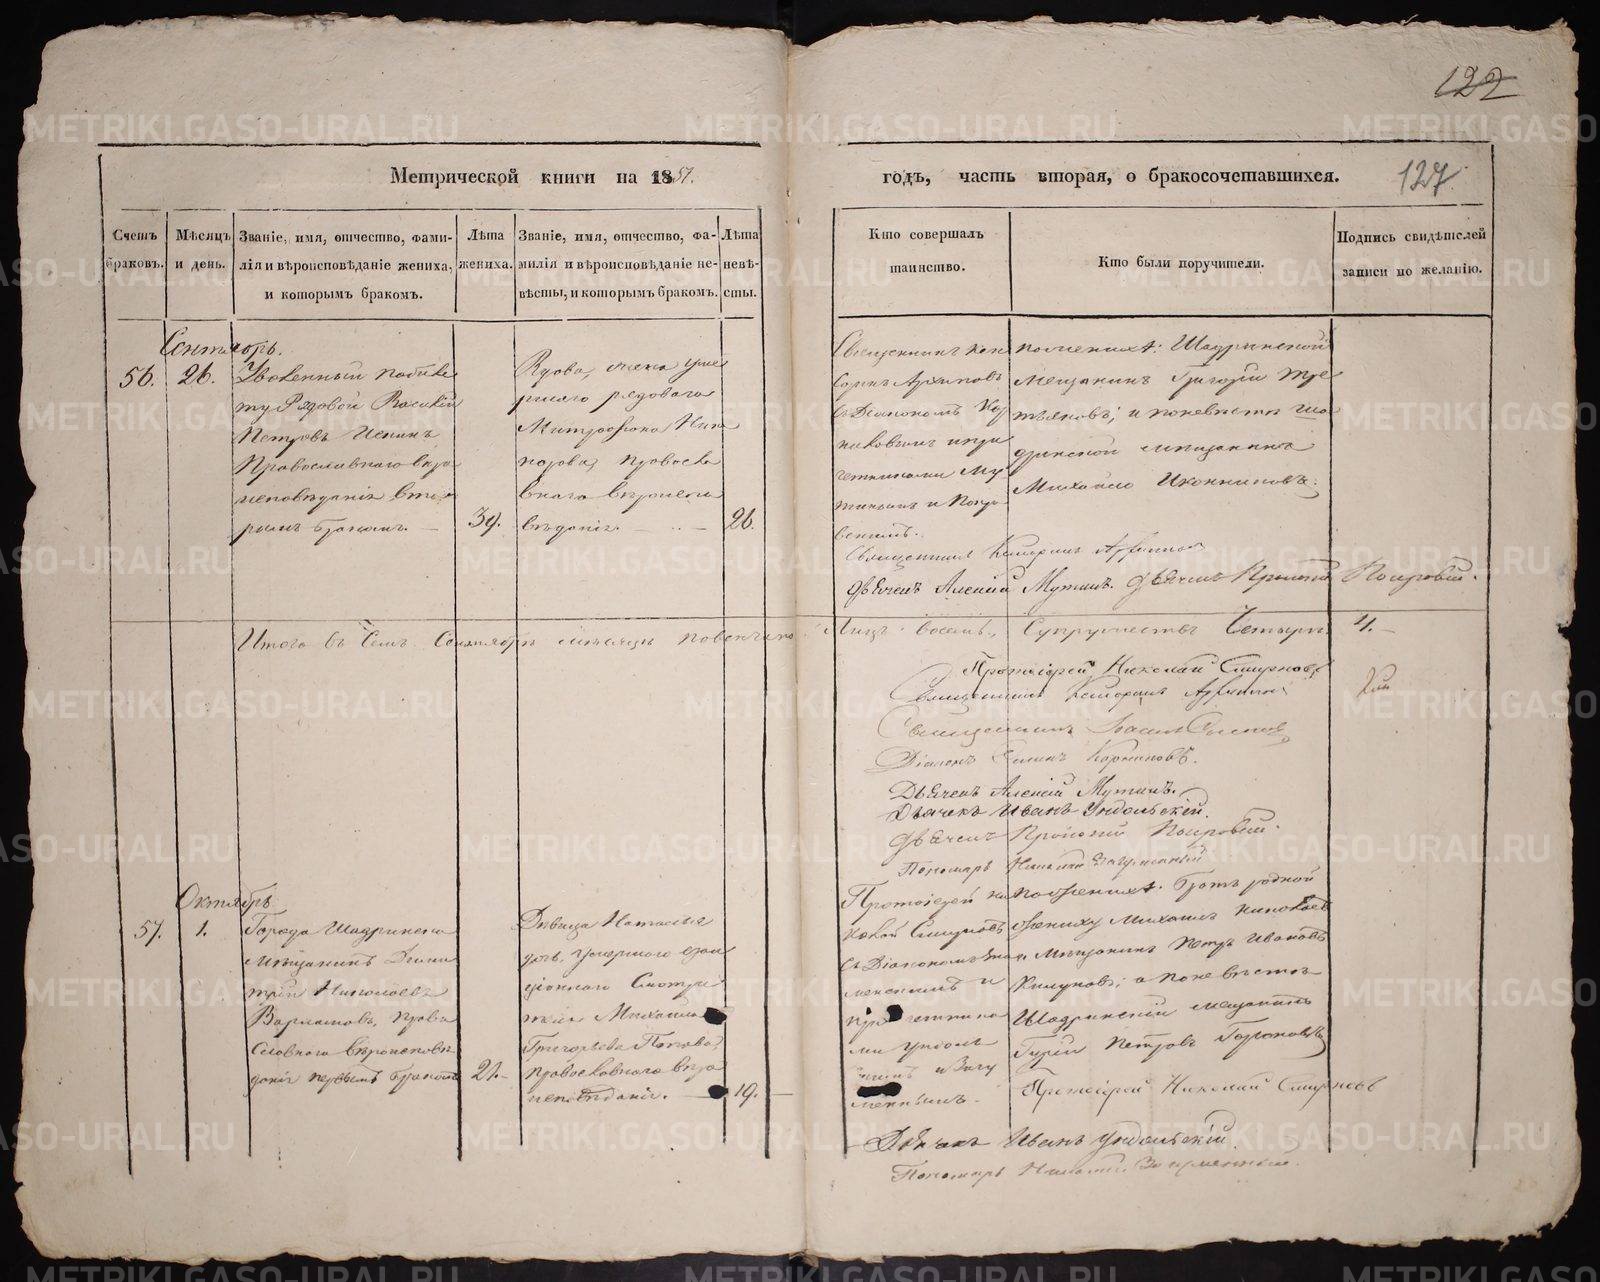 122
Метрической книги на 1857.
годъ, часть вторая, о бракосочетавшихся.
127
Счетъ браковъ.
Мѣсяцъ и день.
Званіе, имя, отчество, фами-
лія и вѣроисповѣданіе жениха,
и которымъ бракомъ.
Лѣта жениха.
Званіе, имя, отчество, фа-
милія и вѣроисповѣданіе не-
вѣсты, и которымъ бракомъ.
Лѣта невѣ-
сты.
Кто совершалъ
таинство.
Кто были поручители.
Подпись свидѣтелей
записи по желанію.
Сентябрь.
56.
26.
Уволенный по билѣ
ту Рядовой Василій
Петровъ
Православнаго вѣро
исповѣданія вто
рымъ бракомъ.
39.
Вдова, жена уме
ршаго рядоваго
Митрофана Ника
норова, Правосла
внаго вѣроиспо
вѣданія.
26.
Священникъ
Архиповъ
съ Діакономъ Кор
наковымъ и при
четниками Му
тинымъ и Покро
вскимъ.
по женихѣ: Шадринской
Мещанинъ Григорій Тре
тьяковъ; и по невѣстѣ Ша
дринской мещанинъ
Михайло Иконниковъ.
Священникъ
Дьячекъ Алексій Мутинъ. Дьячекъ Прокопій Покровскій.
Итого въ семъ Сентябрѣ мѣсяцѣ повенчано: Лицъ восемь, Супружествъ Четыре. 4.
Протоіерей Николай Смирновъ
Священникъ
Священникъ
Діаконъ Корнаковъ.
Дьячекъ Алексій Мутинъ.
Дьячекъ Иванъ Ундольскій.
Дьячекъ Прокопій Покровскій.
Пономарь
Октябрь
57.
1.
Города Шадринска
мѣщанинъ Дими
трій Николаевъ
Варлаковъ, Право
славнаго вѣроисповѣ
данія первымъ бракомъ
21.
Дѣвица Наталья
дочь умершаго
Смотри
теля Михаила
Григорьева Попова,
православнаго вѣро
исповѣданія.
19.
Протоіерей Ни
колай Смирновъ
съ Діакономъ
менскимъ и
причетника
ми Ундоль
скимъ и Загу
меннымъ.
по женихѣ: братъ родной
жениху Михаилъ Николаевъ
и Мѣщанинъ Петръ Ивановъ
а по невѣстѣ
Шадринскій мещанинъ
Гурій Петровъ
Протоіерей Николай Смирновъ
Дьячекъ Иванъ Ундольскій.
Пономарь Загуменный.
METRIKI.GASO-URAL.RU